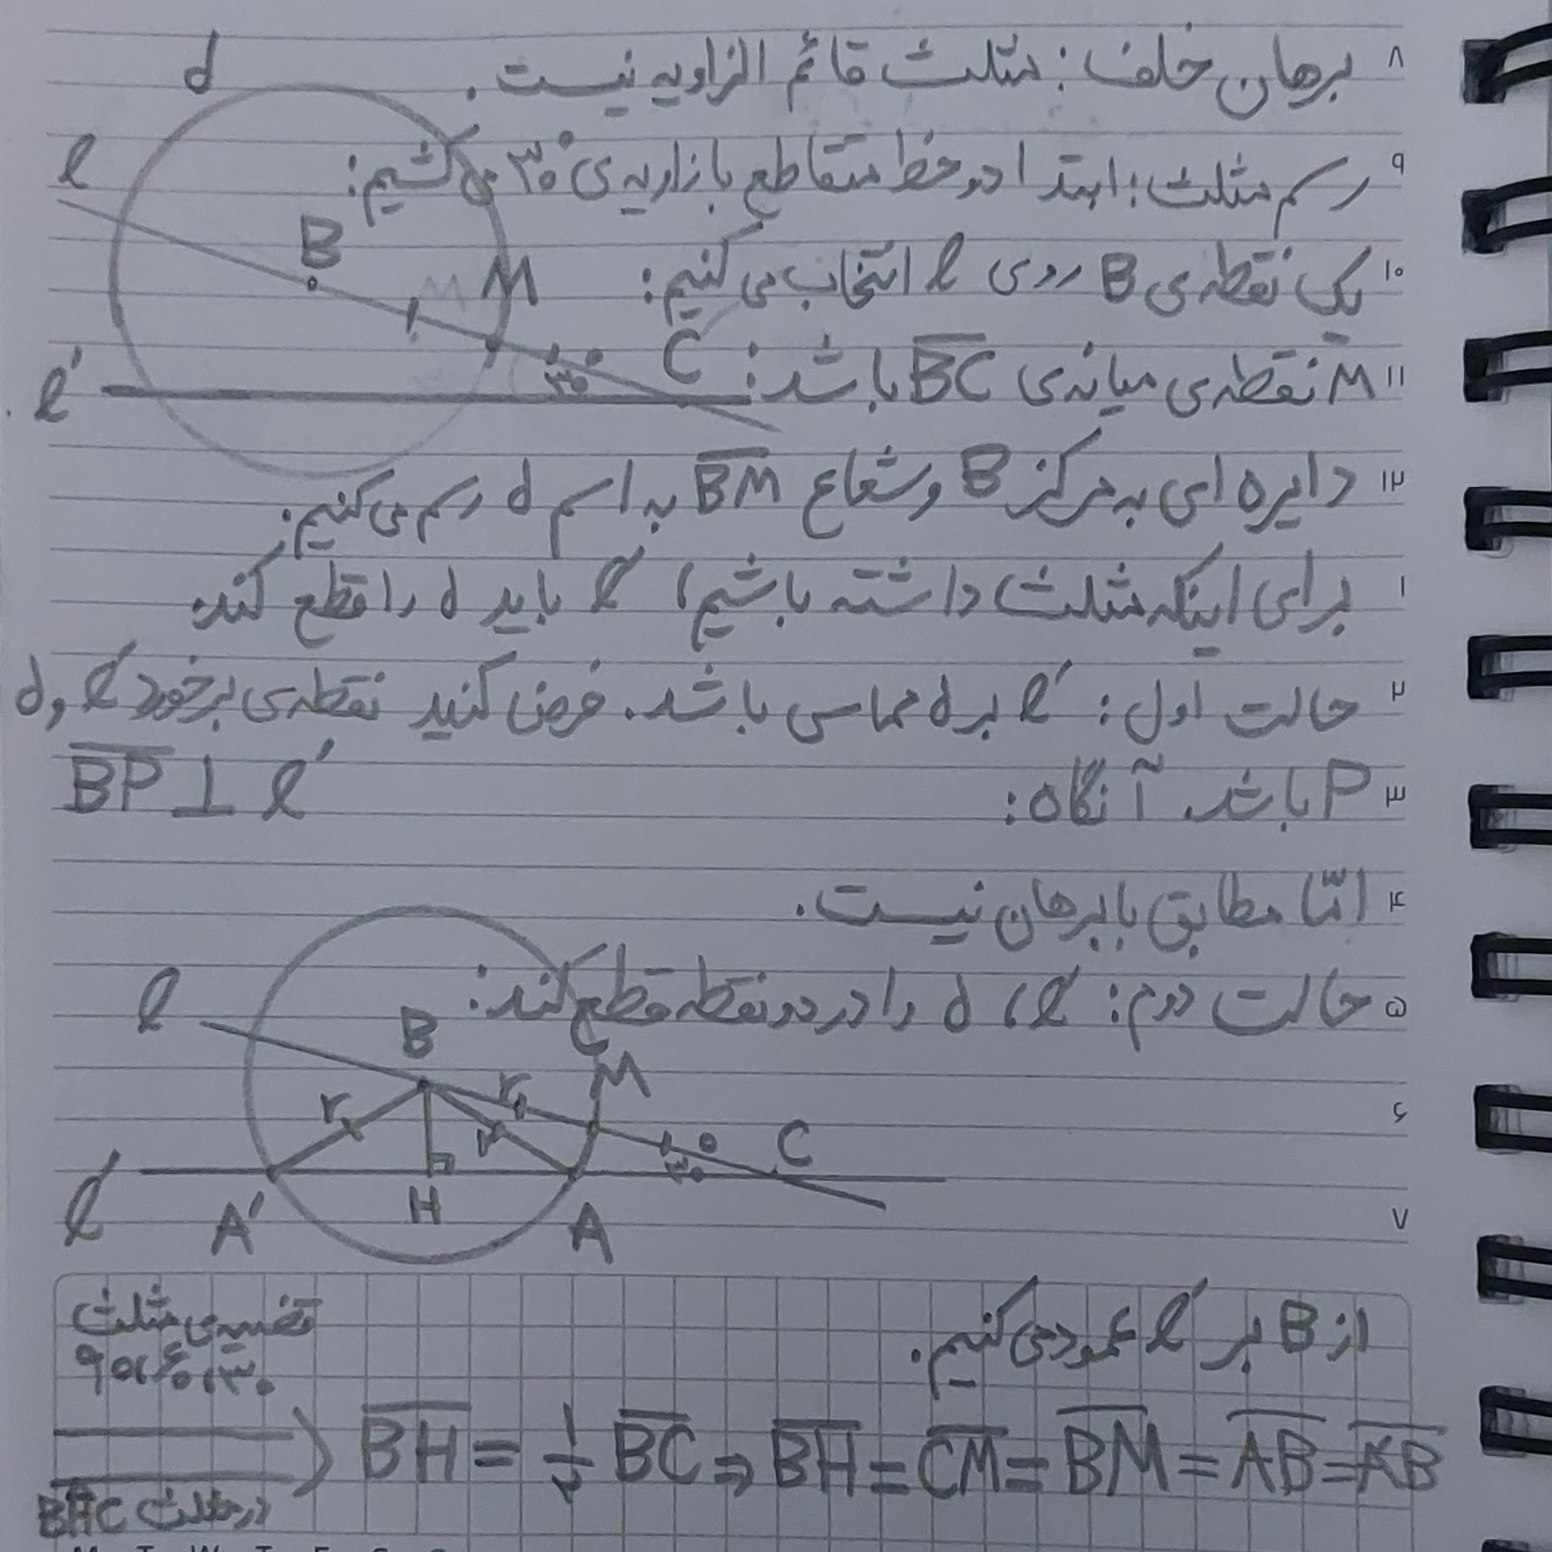 ۸ برهان خلف: مثلث قائم الزاویه نیست.
d
۹ رسم مثلث: ابتدا دو خط متقاطع با زاویه‌ی ۳۰° می‌کشیم:
l
۱۰ یک نقطه‌ی B روی l انتخاب می‌کنیم:
B
M
۱۱ M نقطه‌ی میانه‌ی BC باشد:
C
۳۰°
l'
۱۲ دایره ای به مرکز B و شعاع BM به اسم d رسم می‌کنیم.
۱ برای اینکه مثلث داشته باشیم، l' باید d را قطع کند:
۲ حالت اول: l' بر d مماس باشد. فرض کنید نقطه‌ی برخورد l' و d
۳ P باشد. آنگاه: BP ⊥ l'
۴ امّا مطابق با برهان نیست.
۵ حالت دوم: l'، d را در دو نقطه قطع کند:
l
B
M
r r r
۶
C
۳۰°
l'
A' H A
۷
از B بر l' عمود می‌کنیم.
قضیه‌ی مثلث
۹۰، ۶۰، ۳۰
در مثلث BHC
BH = ۱/۲ BC ⇒ BH = CM = BM = AB = A'B
M T W T F S S